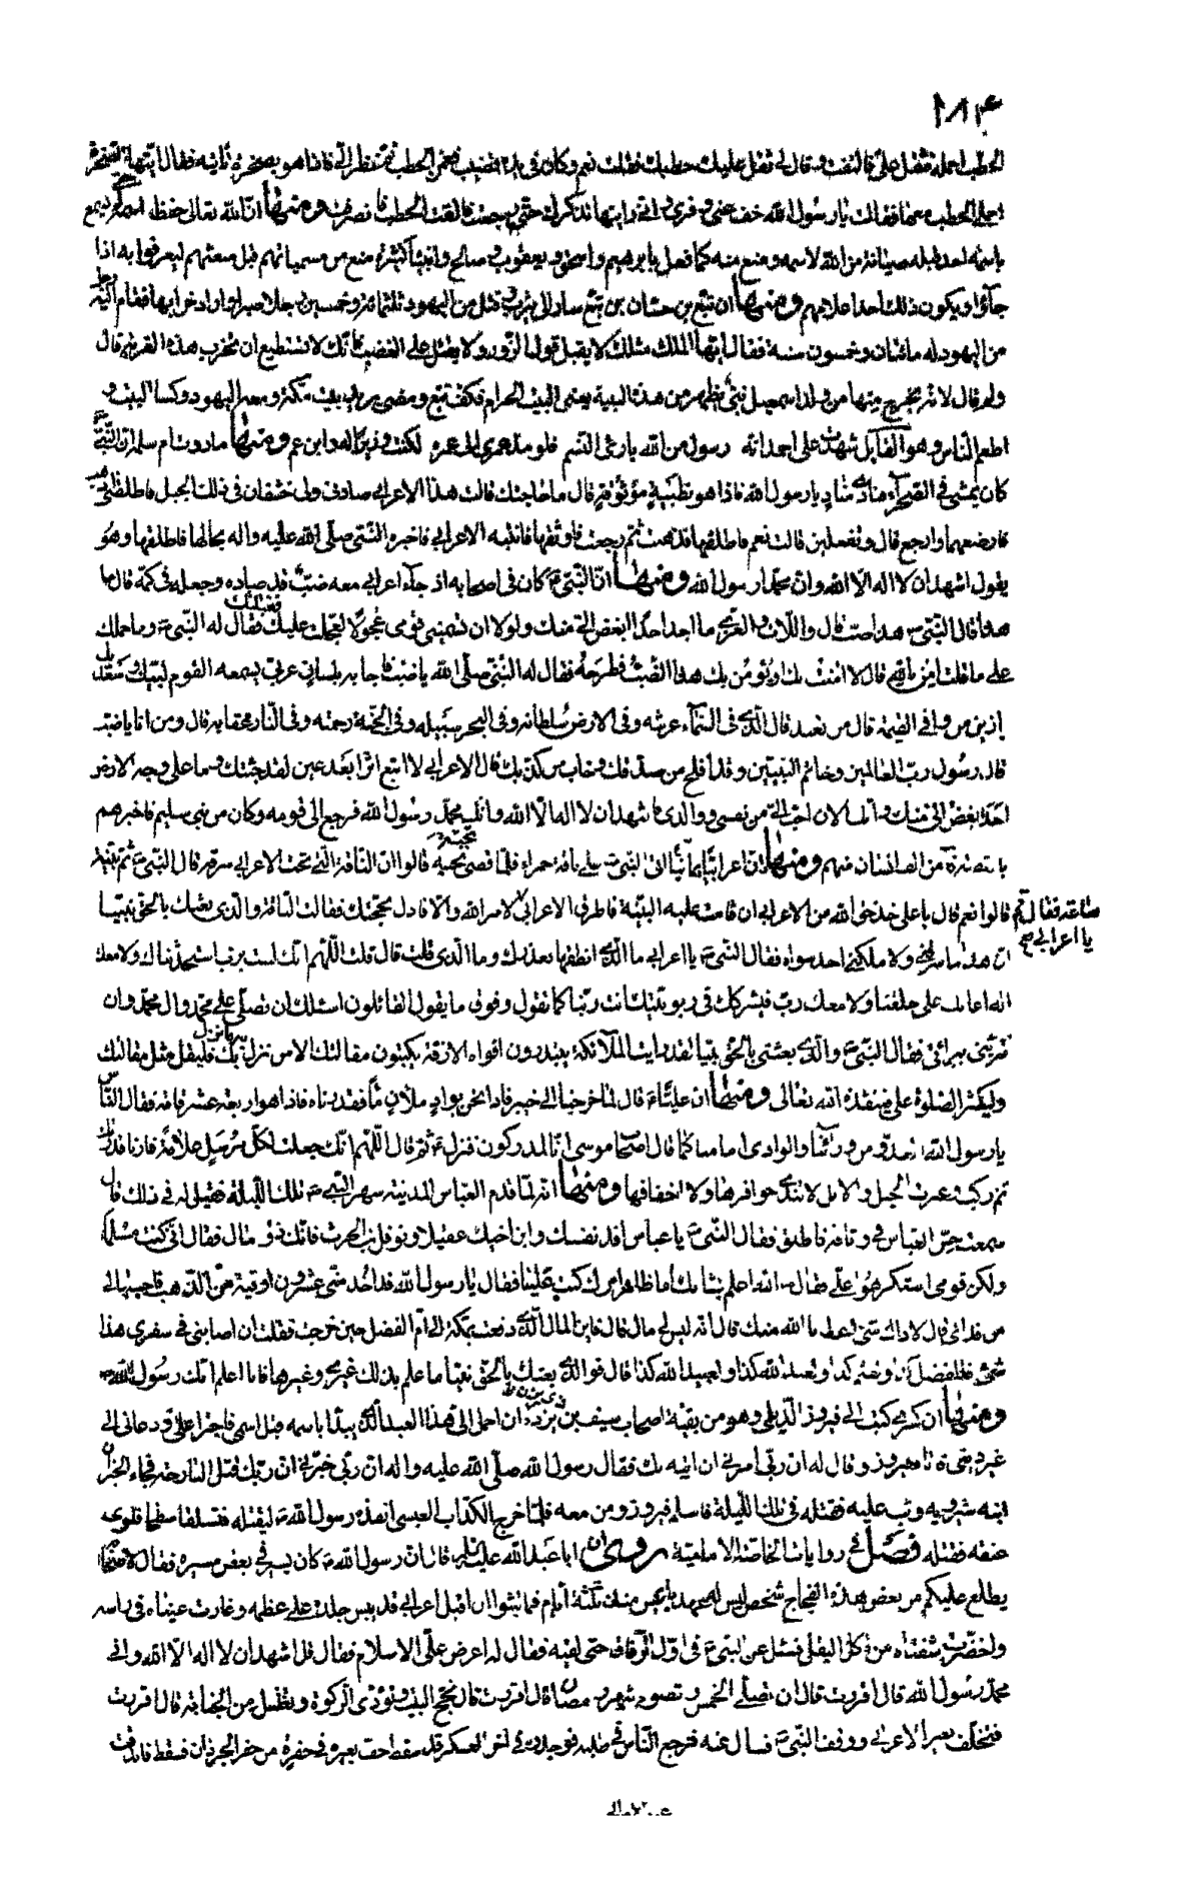 ١٨٤
الحطب احمله فثقل علىّ فالتفت وقال لى ثقل عليك حطبك فقلت نعم وكان فى يده قضيب فغمز الحطب ثم نظر الى فاذا هو بصخرة ناتئة فقال ايتها الصخرة
احملى الحطب معها فقالت يا رسول الله خف عنى وانى رايتها تدكدك حتى رجعت فالقت الحطب فانصرفت ومنها انّ الله تعالى حفظه اسمه لم يسمع
باسمه احد قبله صيانة من الله لاسمه ومنع منه كما فعل بابرهيم واسحق ويعقوب وصالح وانبياء كثيرة منع من مسمياتهم قبل مبعثهم ليعرفوا به اذا
جاؤا ويكون ذلك احد اعلامهم ومنها ان تبّع بن حسّان بن تبّع سار الى يثرب وقتل من اليهود ثلثمائة وخمسين رجلا صبرا واراد خرابها فقام اليه رجل
من اليهود له مائتان وخمسون سنة فقال ايها الملك مثلك لا يقبل قول الزور ولا يقتل على الغضب وانك لا تستطيع ان تخرب هذه القرية قال
ولم قال لانه يخرج منها من ولد اسمعيل نبىّ يظهر من هذه البنية يعنى البيت الحرام فكفّ تبع ومضى يريد مكة ومعه اليهود وكسا البيت و
اطعم الناس وهو القايل شهدت على احمد انه رسول من الله بارئ النسم فلو مدّ عمرى الى عمره لكنت وزيرا له وابن عم ومنها ما روت ام سلمة ان النبىّ
كان يمشى فى الصحراء فناداه مناد يا رسول الله فاذا هو بظبية موثوقة قال ما حاجتك قالت هذا الاعرابى صادنى ولى خشفان فى ذلك الجبل فاطلقنى حتى اذهب
فارضعهما وارجع قال وتفعلين قالت نعم فاطلقها فذهبت ثم رجعت فاوثقها فاتاه الاعرابى فاخبره النبى صلّى الله عليه واله بحالها فاطلقها وهو
يقول اشهد ان لا اله الا الله وان محمدا رسول الله ومنها انّ النبىّ كان فى اصحابه اذ جاء اعرابى معه ضبّ قد صاده وجعله فى كمّه قال من
هذا قال النبىّ هذا قال واللات والعزى ما احد احدا ابغض الىّ منك ولولا ان تسمينى قومى عجولا لعجلت عليك فقتلتك فقال له النبى وما حملك
على ما قلت امن بالله قال لا امنت بك او يؤمن بك هذا الضبّ فطرحه فقال له النبى صلّى الله يا ضبّ فاجابه بلسان عربى يسمعه القوم لبيك وسعديك
يا زين من وافى القيمة قال من تعبد قال الذى فى السماء عرشه وفى الارض سلطانه وفى البحر سبيله وفى الجنة رحمته وفى النار عقابه قال ومن انا يا ضب
قال رسول ربّ العالمين وخاتم النبيين وقد افلح من صدقك وخاب من كذبك قال الاعرابى لا اتبع اثرا بعد عين لقد جئتك وما على وجه الارض
احد ابغض الىّ منك وانك الان احب الىّ من نفسى ووالدى اشهد ان لا اله الا الله وانك محمد رسول الله فرجع الى قومه وكان من بنى سليم فاخبرهم
ومنها ان اعرابيّا يمانيّا اتى النبى على ناقة حمراء فلما قضى تحيّته قالوا ان الناقة التى تحت الاعرابى سرقة قال النبى اثمّ بيّنة
قالوا نعم قال يا على خذ حق الله من الاعرابى ان قامت عليه البيّنة فاطرق الاعرابى ساعة فقال قم يا اعرابى لامر الله والا فادل بحجتك فقالت الناقة والذى بعثك بالحق نبيّا
ان هذا ما سرقنى ولا ملكنى احد سواه فقال النبى يا اعرابى ما الذى انطقها بعذرك وما الذى قلت قال قلت اللّهم انك لست برب استحدثناك ولا معك
اله اعانك على خلقنا ولا معك ربّ فيشركك فى ربوبيتك انت ربّنا كما نقول وفوق ما يقول القائلون اسئلك ان تصلّى على محمد وال محمد وان
تبرئنى ببرائتى فقال النبى والذى بعثنى بالحق نبيّا لقد رايت الملائكة يبتدرون افواه الازقة يكتبون مقالتك الا من نزل به ما نزل بك فليقل مثل مقالتك
وليكثر الصلوة علىّ فينقذه الله تعالى ومنها ان عليّا قال لما خرجنا الى خيبر فاذا نحن بواد ملان ماء فقدرناه فاذا هو اربعة عشر قامة فقال الناس
يا رسول الله العدوّ من ورائنا والوادى امامنا كما قال اصحاب موسى انا لمدركون فنزل ثم قال اللّهم انك جعلت لكل مرسل علامة فارنا قدرتك
ثم ركب وعبرت الخيل والابل لا تندى حوافرها ولا اخفافها ومنها انه لما قدم العباس المدينة سهر النبى تلك الليلة فقيل له فى ذلك قال
سمعت حسّ العباس فى وثاقه فاطلق فقال النبى يا عباس افد نفسك وابن اخيك عقيلا ونوفل بن الحرث فانك ذو مال فقال انى كنت مسلما
ولكن قومى استكرهونى على فقال الله اعلم بشانك اما ظاهر امرك كنت علينا فقال يا رسول الله قد اخذ منى عشرون اوقية من الذهب فاحسبها لى
من فدائى قال لا ذاك شىء اعطانا الله منك قال انه ليس لى مال قال فاين المال الذى دفعت بمكة الى ام الفضل حين خرجت فقلت ان اصابنى فى سفرى هذا
شىء فللفضل كذا ولقثم كذا ولعبد الله كذا ولعبيد الله كذا قال فوالذى بعثك بالحق نبيّا ما علم بذلك غيرى وغيرها فانا اعلم انك رسول الله
ومنها ان كسرى كتب الى فيروز الديلمى وهو من بقية اصحاب سيف بن ذى يزن ان احمل الىّ هذا العبد الذى يبدا باسمه قبل اسمى فاجترا علىّ ودعانى الى
غير دينى فاتاه فيروز وقال له ان ربّى امرنى ان اتيه بك فقال رسول الله صلّى الله عليه واله ان ربّى خبّرنى ان ربّك قتل البارحة فجاء الخبر ان
ابنه شيرويه وثب عليه فقتله فى تلك الليلة فاسلم فيروز ومن معه فلما خرج الكذاب العبسى انفذه رسول الله ليقتله فتسلق سطحا فلوى
عنقه فقتله فصل فى روايات الخاصة الامامية روى ان ابا عبد الله عليه السلام قال ان رسول الله كان يسير فى بعض مسيره فقال لاصحابه
يطلع عليكم من بعض هذه الفجاج شخص ليس له عهد بابليس منذ ثلثة ايام فما لبثوا ان اقبل اعرابى قد يبس جلده على عظمه وغارت عيناه فى راسه
واخضرّت شفتاه من اكل البقل فسئل عن النبى فى اول الرفاق حتى لقيه فقال له اعرض علىّ الاسلام فقال قل اشهد ان لا اله الا الله وانى
محمد رسول الله قال اقررت قال ان تصلّى الخمس وتصوم شهر رمضان قال اقررت قال تحج البيت وتؤدى الزكوة وتغتسل من الجنابة قال اقررت
فتخلّف بعير الاعرابى ووقف النبى فسال عنه فرجع الناس فى طلبه فوجدوه فى اخر العسكر قد سقط خف بعيره فى حفرة من حفر الجرذان فسقط فاندقت